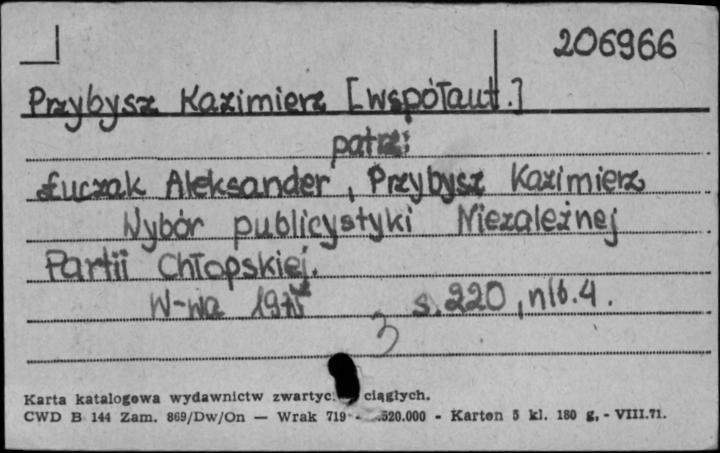 206966
Przybysz Kazimierz [współaut.]
patrz:
Łuczak Aleksander, Przybysz Kazimierz
Wybór publicystyki Niezależnej
Partii Chłopskiej.
W-wa s. 220, nlb. 4.
3
Karta katalogowa wydawnictw ciągłych.
CWD B 144 Zam. 869/Dw/On — Wrak 719 520.000 - Karton 5 kl. 180 g. - VIII.71.